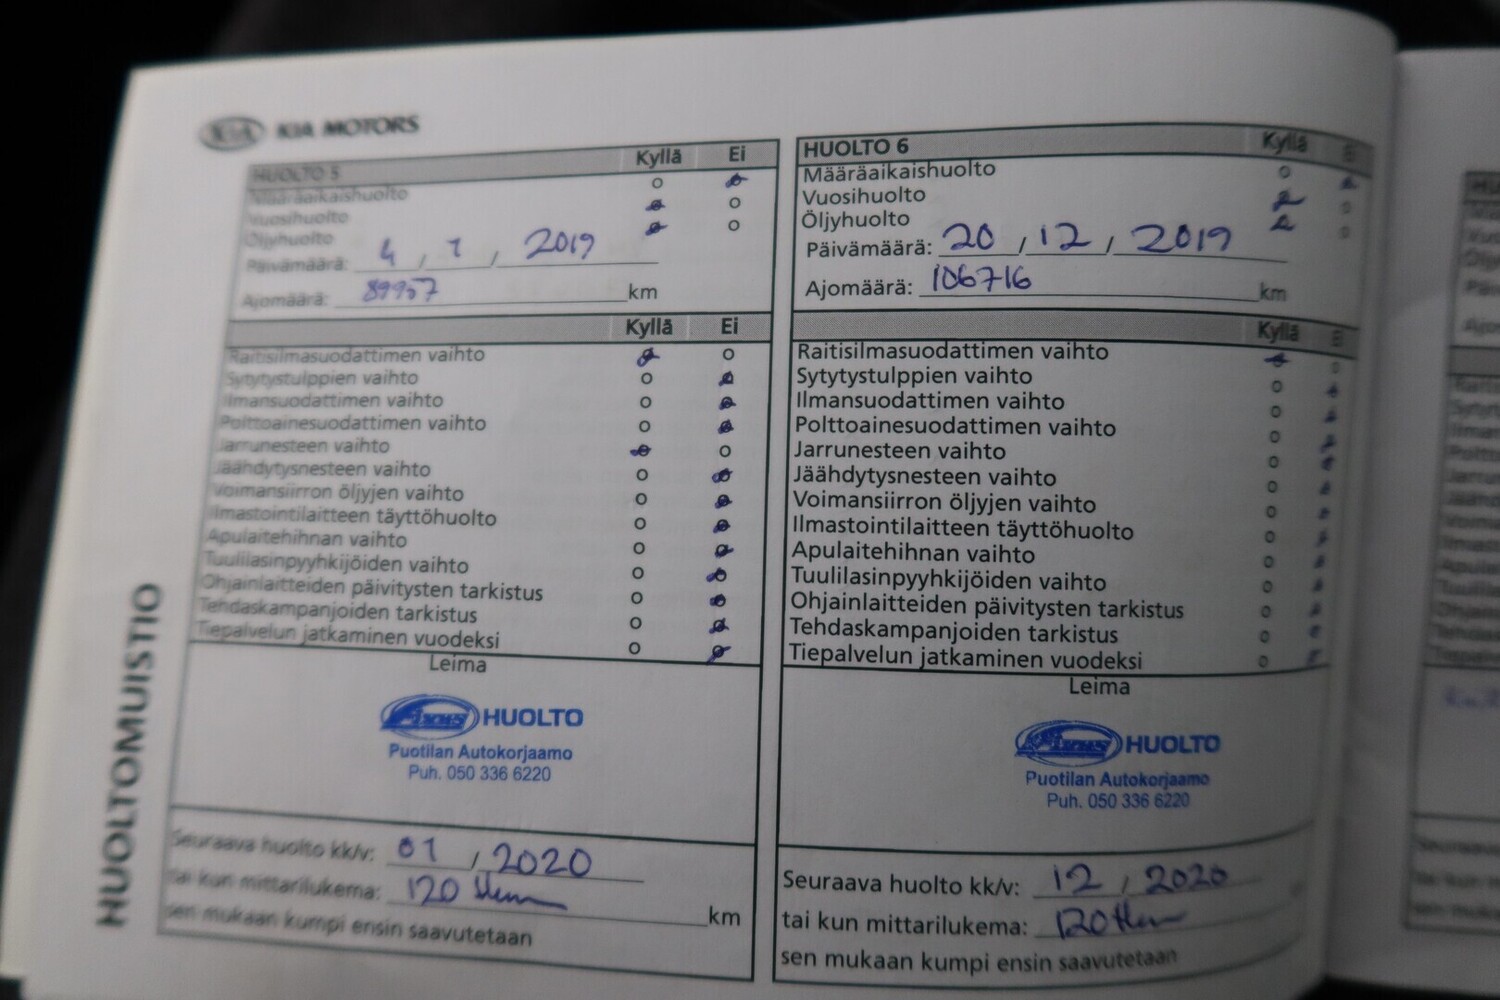 KIA KIA MOTORS
HUOLTO 5 Kyllä Ei
Määräaikaishuolto
Vuosihuolto
Öljyhuolto
Päivämäärä: 4 / 1 / 2019
Ajomäärä: 89957 km
Kyllä Ei
Raitisilmasuodattimen vaihto
Sytytystulppien vaihto
Ilmansuodattimen vaihto
Polttoainesuodattimen vaihto
Jarrunesteen vaihto
Jäähdytysnesteen vaihto
Voimansiirron öljyjen vaihto
Ilmastointilaitteen täyttöhuolto
Apulaitehihnan vaihto
Tuulilasinpyyhkijöiden vaihto
Ohjainlaitteiden päivitysten tarkistus
Tehdaskampanjoiden tarkistus
Tiepalvelun jatkaminen vuodeksi
Leima
HUOLTO
Puotilan Autokorjaamo
Puh. 050 336 6220
Seuraava huolto kk/v: 01 / 2020
tai kun mittarilukema: 120 km
sen mukaan kumpi ensin saavutetaan
HUOLTO 6 Kyllä Ei
Määräaikaishuolto
Vuosihuolto
Öljyhuolto
Päivämäärä: 20 / 12 / 2019
Ajomäärä: 106716 km
Kyllä Ei
Raitisilmasuodattimen vaihto
Sytytystulppien vaihto
Ilmansuodattimen vaihto
Polttoainesuodattimen vaihto
Jarrunesteen vaihto
Jäähdytysnesteen vaihto
Voimansiirron öljyjen vaihto
Ilmastointilaitteen täyttöhuolto
Apulaitehihnan vaihto
Tuulilasinpyyhkijöiden vaihto
Ohjainlaitteiden päivitysten tarkistus
Tehdaskampanjoiden tarkistus
Tiepalvelun jatkaminen vuodeksi
Leima
HUOLTO
Puotilan Autokorjaamo
Puh. 050 336 6220
Seuraava huolto kk/v: 12 / 2020
tai kun mittarilukema: 120
sen mukaan kumpi ensin saavutetaan
HUOLTOMUISTIO